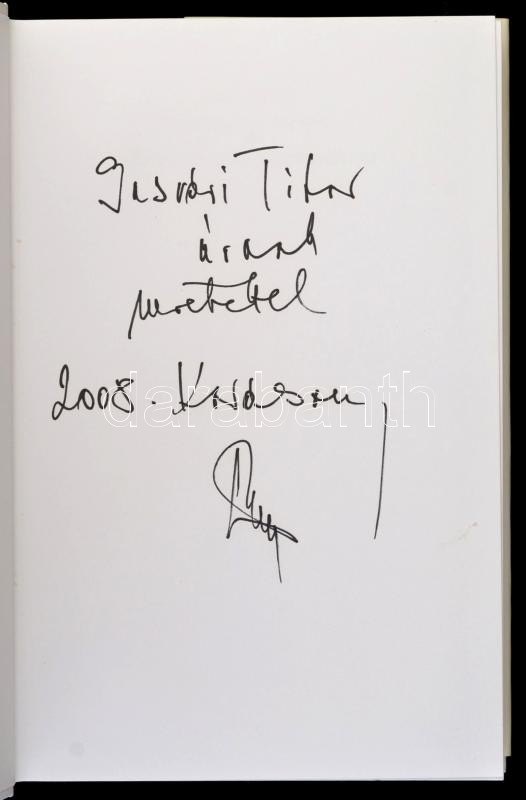 Tibor
úrnak
szeretettel
2008. Karácsony
darabanth